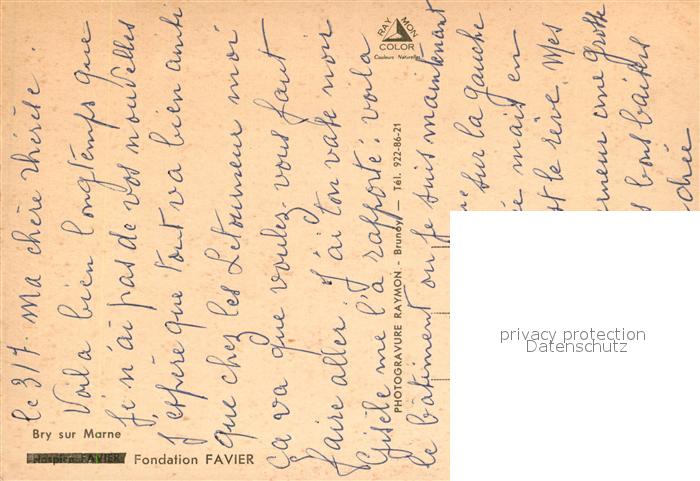 le 3/7. Ma chère Thérèse.
Voilà bien longtemps que
je n'ai pas de vos nouvelles
j'espère que tout va bien ainsi
que chez les Letourneur moi
ça va que voulez-vous faut
faire aller. J'ai ton vase noir
Gisèle me l'a rapporté: voilà
le bâtiment ou je suis maintenant
sur la gauche
mais en
le rêve. Mes
une grosse
bons baisers
RAYMON
COLOR
Couleurs Naturelles
PHOTOGRAVURE RAYMON - Brunoy - Tél. 922-86-21
Bry sur Marne
Hospice FAVIER Fondation FAVIER
privacy protection
Datenschutz